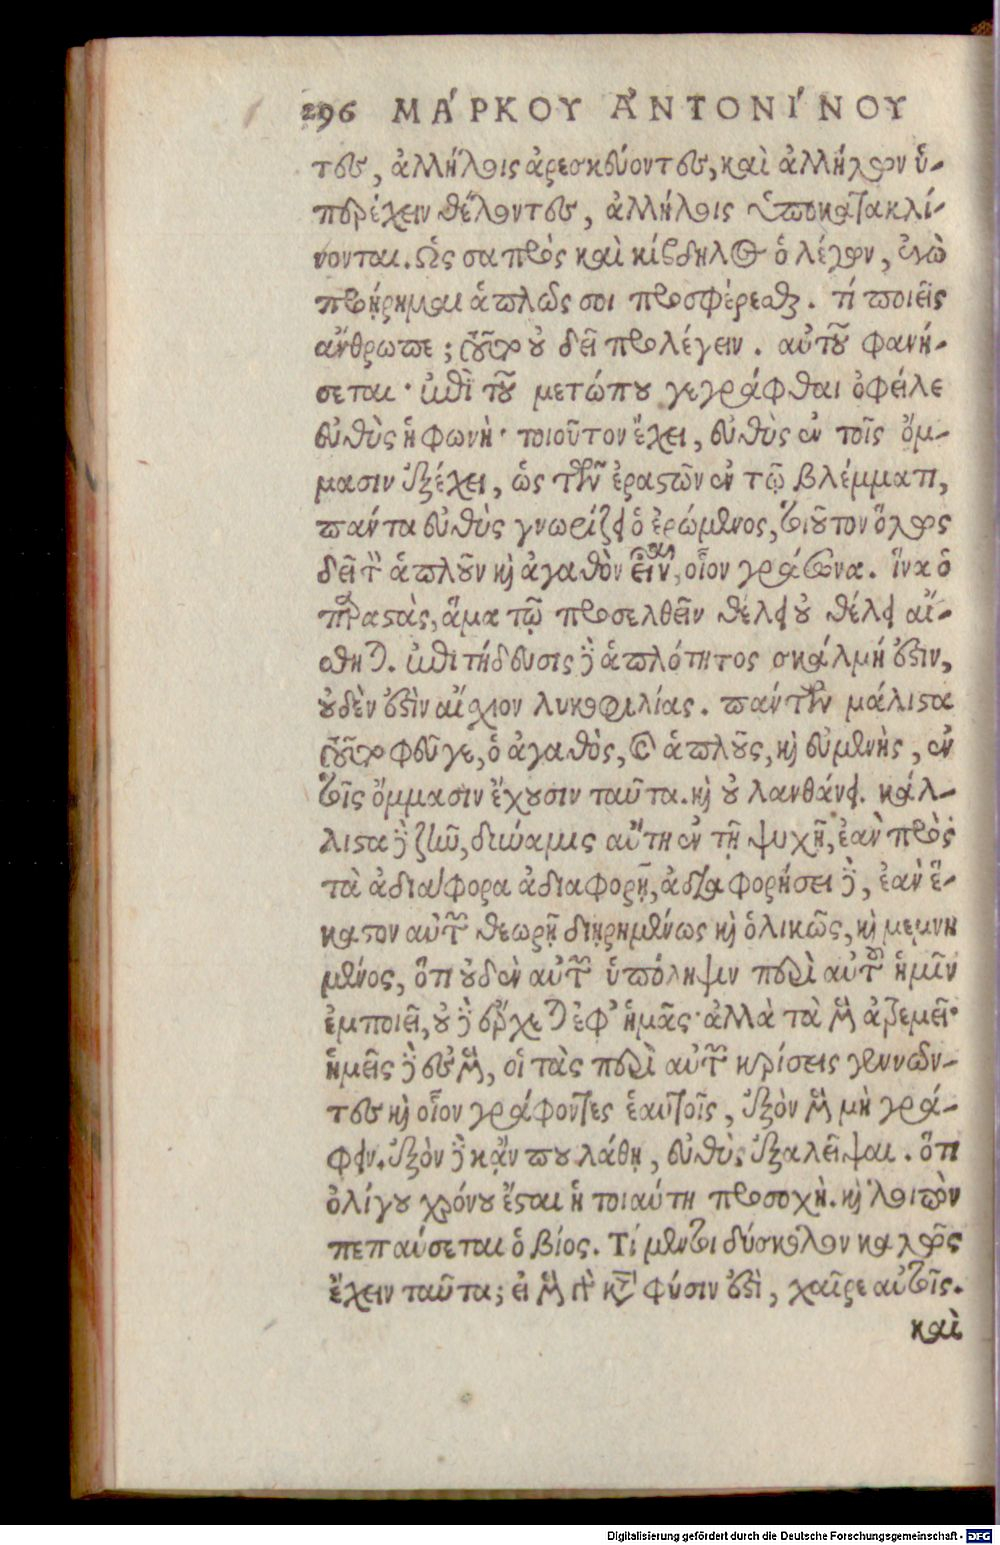 296 ΜΆΡΚΟΥ ἈΝΤΟΝΊΝΟΥ
τες, ἀλλήλοις ἀρεσκεύονται, καὶ ἀλλήλων ὑ-
περέχειν θέλοντες, ἀλλήλοις ὑποκατακλί-
νονται. Ὡς σαπρὸς καὶ κίβδηλος ὁ λέγων, ἐγὼ
προῄρημαι ἁπλῶς σοι προσφέρεσθαι. τί ποιεῖς
ἄνθρωπε; τοῦτο οὐ δεῖ προλέγειν. αὐτοῦ φανή-
σεται· ἐπὶ τοῦ μετώπου γεγράφθαι ὀφείλει
εὐθὺς ἡ φωνὴ· τοιοῦτον ἔχει, εὐθὺς ἐν τοῖς ὄμ-
μασιν ἐξέχει, ὡς τῶν ἐραστῶν ἐν τῷ βλέμματι,
πάντα εὐθὺς γνωρίζει ὁ ἐρώμενος, τοιοῦτον ὅλως
δεῖ τὸν ἁπλοῦν καὶ ἀγαθὸν εἶναι, οἷον γράσωνα. ἵνα ὁ
παραστὰς, ἅμα τῷ προσελθεῖν θέλει οὐ θέλει αἴ-
σθηται. ἐπιτήδευσις δὲ ἁπλότητος σκάλμή ἐστιν,
οὐδὲν ἐστὶν αἴσχιον λυκοφιλίας. πάντων μάλιστα
τοῦτο φεῦγε, ὁ ἀγαθὸς, καὶ ἁπλοῦς, καὶ εὐμενὴς, ἐν
τοῖς ὄμμασιν ἔχουσιν ταῦτα. καὶ οὐ λανθάνει. κάλ-
λιστα δὲ ζῆν, δύναμις αὕτη ἐν τῇ ψυχῇ, ἐὰν πρὸς
τὰ ἀδιάφορα ἀδιαφορῇ, ἀδιαφορήσει δὲ, ἐὰν ἕ-
καστον αὐτῶν θεωρῇ διῃρημένως καὶ ὁλικῶς, καὶ μεμνη
μένος, ὅτι οὐδὲν αὐτῶν ὑπόληψιν περὶ αὐτοῦ ἡμῖν
ἐμποιεῖ, οὐ δὲ ἔρχεται ἐφ' ἡμᾶς· ἀλλὰ τὰ μὲν ἀτρεμεῖ·
ἡμεῖς δὲ ἐσμὲν, οἱ τὰς περὶ αὐτῶν κρίσεις γεννῶν-
τες καὶ οἷον γράφοντες ἑαυτοῖς, ἐξὸν μὲν μὴ γρά-
φειν. ἐξὸν δὲ κἄν που λάθῃ, εὐθὺς ἐξαλεῖψαι. ὅτι
ὀλίγου χρόνου ἔσται ἡ τοιαύτη προσοχὴ. καὶ λοιπὸν
πεπαύσεται ὁ βίος. Τί μέντοι δύσκολον καλῶς
ἔχειν ταῦτα; εἰ μὲν γὰρ κατὰ φύσιν ἐστὶ, χαῖρε αὐτοῖς.
καὶ
Digitalisierung gefördert durch die Deutsche Forschungsgemeinschaft - DFG